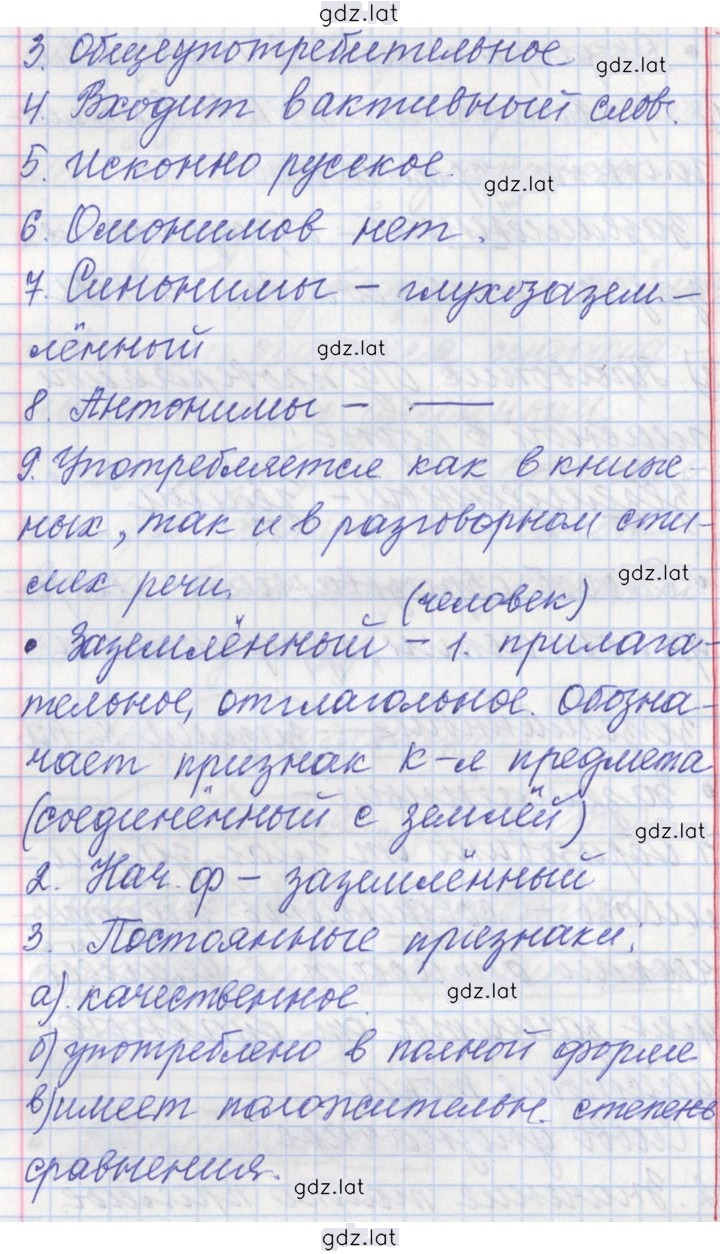 gdz.lat
3. Общеупотребительное
gdz.lat
4. Входит в активный слов.
5. Исконно русское.
gdz.lat
6. Омонимов нет.
7. Синонимы – глухозазем-
лённый
gdz.lat
8. Антонимы – —
9. Употребляется как в книж-
ных, так и в разговорном сти-
лях речи.
gdz.lat
(человек)
• Заземлённый – 1. прилага-
тельное, отглагольное. Обозна-
чает признак к-л предмета
(соединённый с землёй)
gdz.lat
2. Нач. ф – заземлённый
3. Постоянные признаки:
а) качественное.
gdz.lat
б) употреблено в полной форме
в) имеет положительн. степень
сравнения.
gdz.lat
gdz.lat